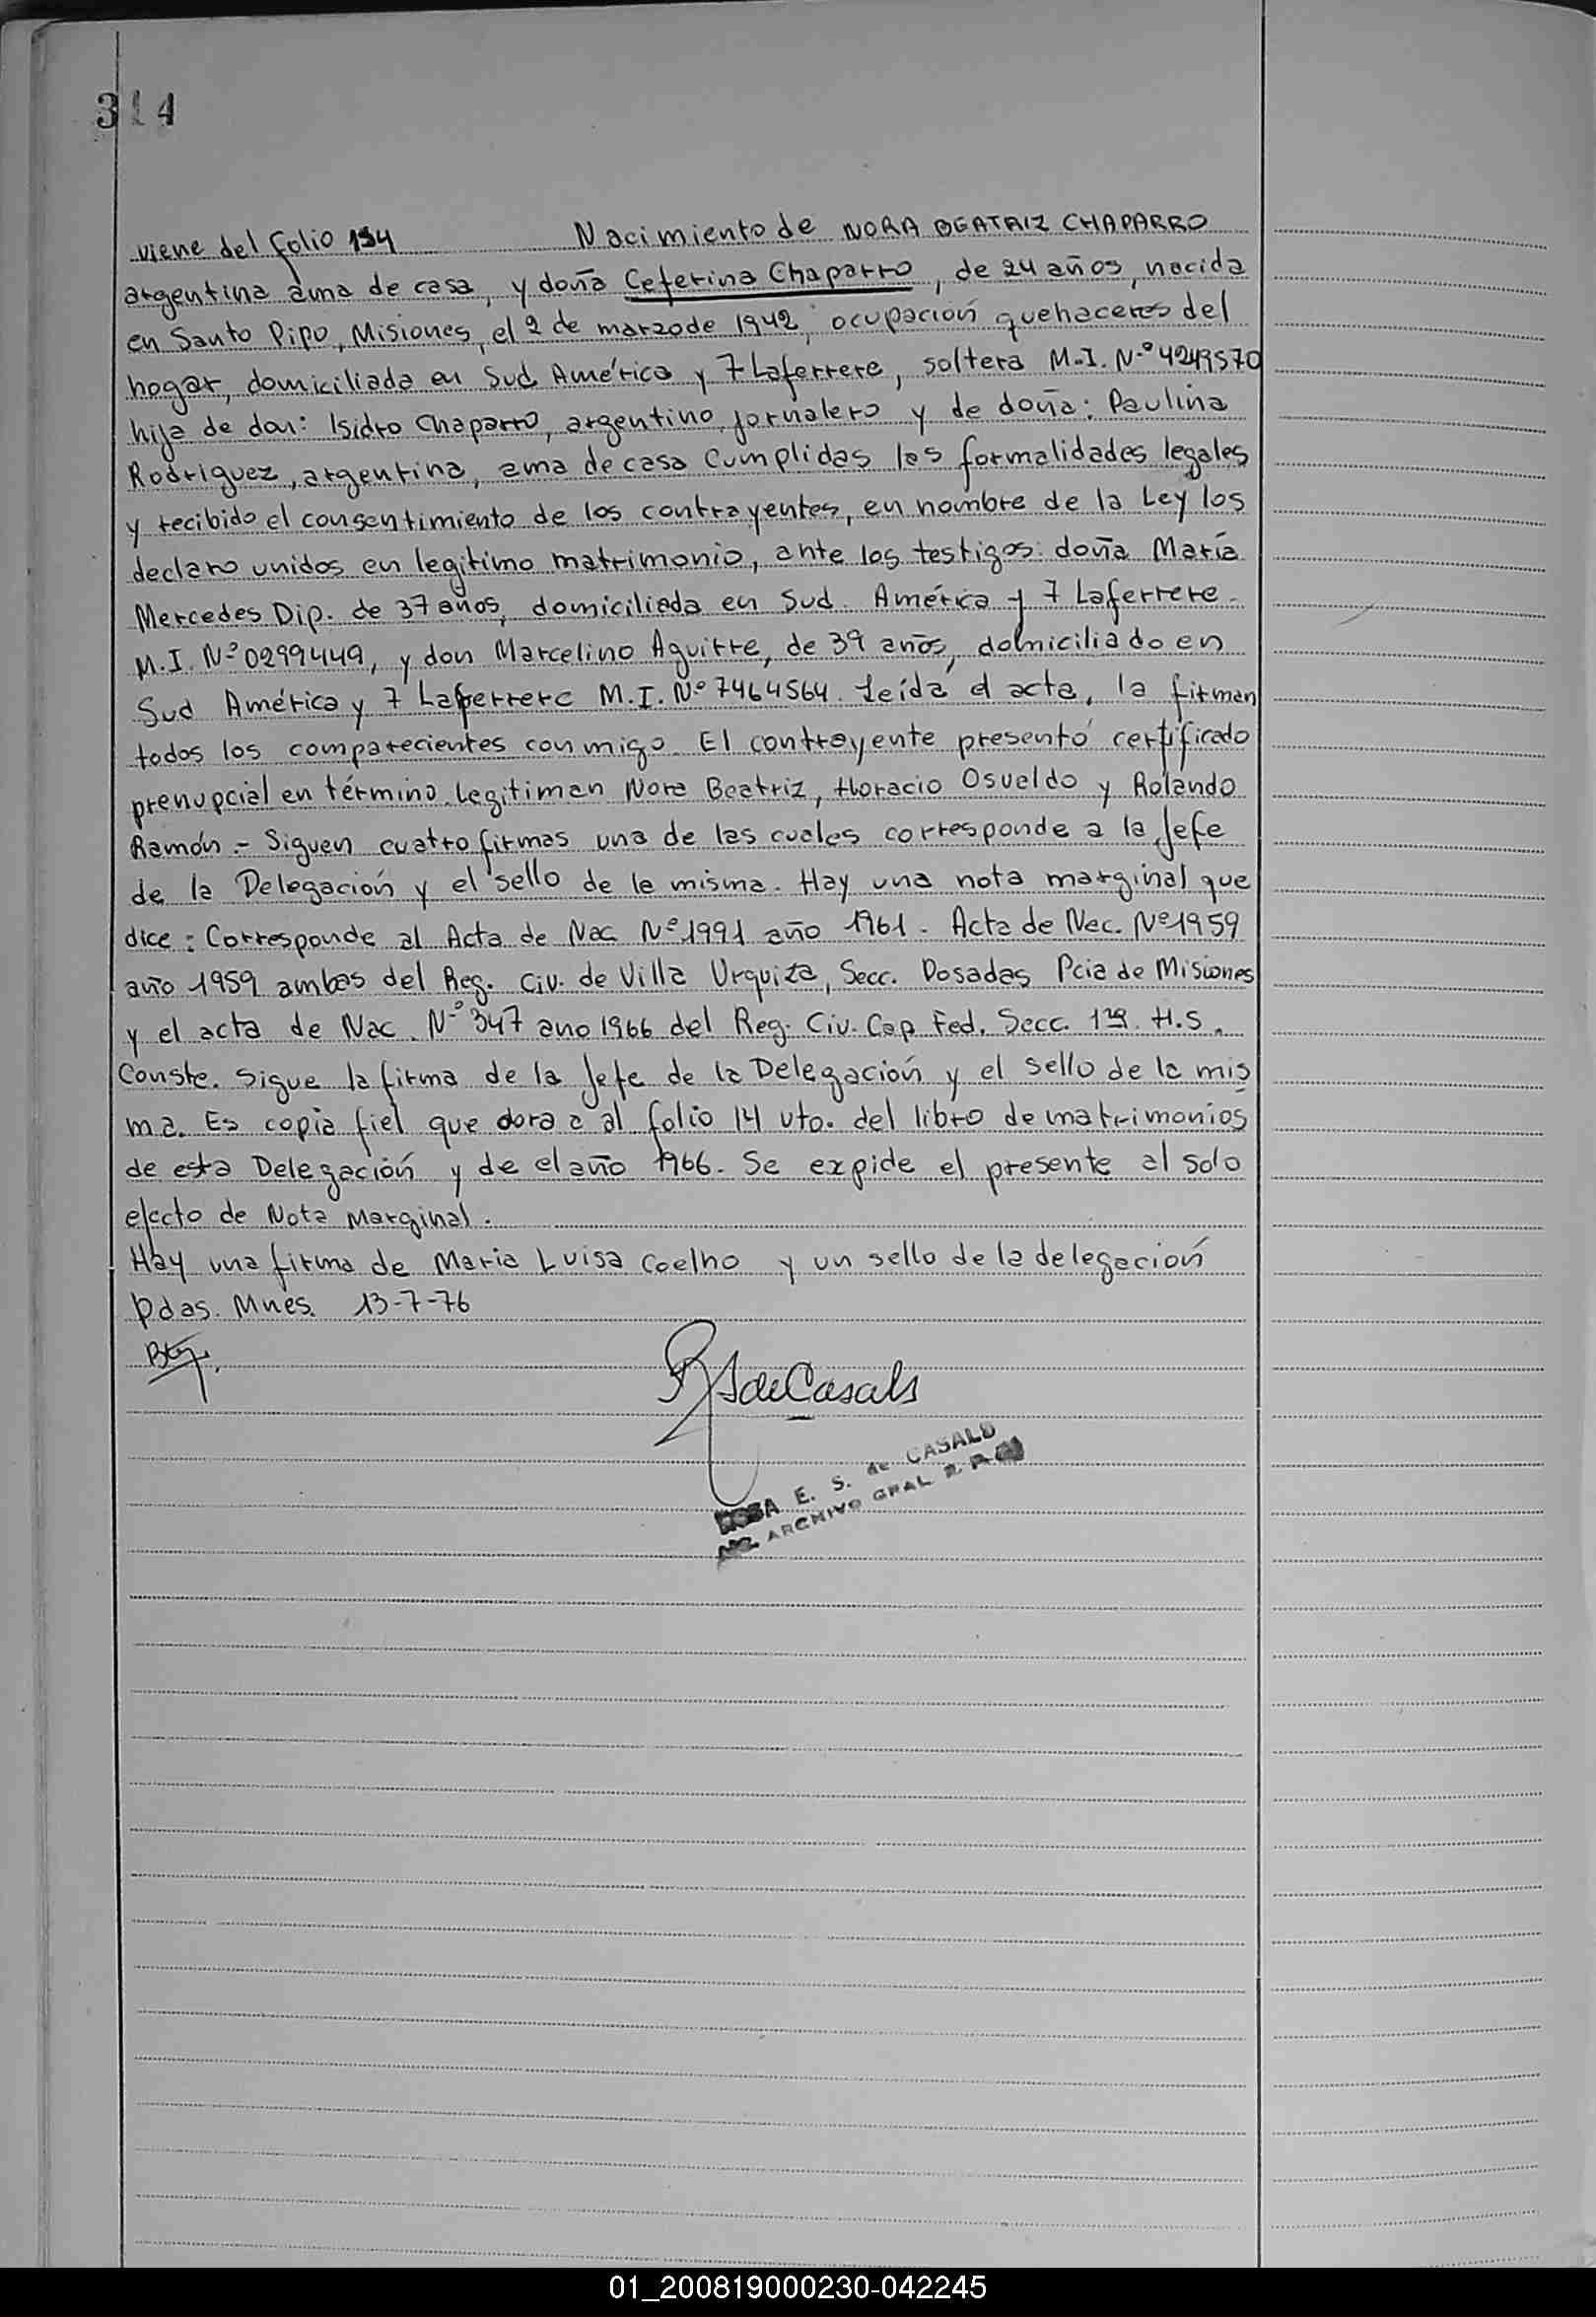 314
viene del folio 194 Nacimiento de NORA BEATRIZ CHAPARRO
argentina ama de casa, y doña Ceferina Chaparro, de 24 años, nacida
en Santo Pipo, Misiones, el 2 de marzo de 1942, ocupación quehaceres del
hogar, domiciliada en Sud América y 7 Laferrere, soltera M.I. Nº 4249570
hija de don: Isidro Chaparro, argentino, jornalero y de doña: Paulina
Rodriguez, argentina, ama de casa Cumplidas las formalidades legales
y recibido el consentimiento de los contrayentes, en nombre de la Ley los
declaro unidos en legítimo matrimonio, ante los testigos: doña María
Mercedes Dip. de 37 años, domiciliada en Sud. América y 7 Laferrere.
M.I. Nº 0299449, y don Marcelino Aguirre, de 39 años, domiciliado en
Sud América y 7 Laferrere M.I. Nº 7464564. Leída el acta, la firman
todos los comparecientes conmigo. El contrayente presentó certificado
prenupcial en término. Legitiman Nora Beatriz, Horacio Osvaldo y Rolando
Ramón.- Siguen cuatro firmas una de las cuales corresponde a la Jefe
de la Delegación y el sello de la misma. Hay una nota marginal que
dice: Corresponde al Acta de Nac Nº 1991 año 1961. Acta de Nac. Nº 1959
año 1959 ambas del Reg. Civ. de Villa Urquiza, Secc. Posadas Pcia de Misiones
y el acta de Nac. Nº 347 año 1966 del Reg. Civ. Cap Fed. Secc. 1ra. H.S.
Conste. Sigue la firma de la Jefe de la Delegación y el sello de la mis
ma. Es copia fiel que obra a al folio 14 vto. del libro de matrimonios
de esta Delegación y de el año 1966. Se expide el presente al solo
efecto de Nota Marginal.
Hay una firma de Maria Luisa Coelho y un sello de la delegación
Pdas. Mnes. 13-7-76
de Casals
ROSA E. S. de CASALS
ARCHIVO GRAL
01_200819000230-042245